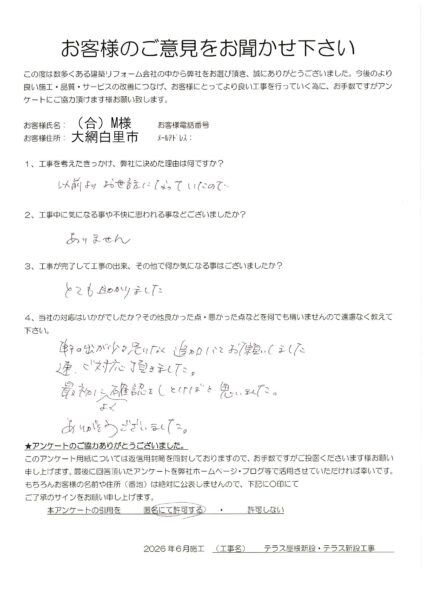 お客様のご意見をお聞かせ下さい
この度は数多くある建築リフォーム会社の中から弊社をお選び頂き、誠にありがとうございました。今後のより
良い施工・品質・サービスの改善につなげ、お客様にとってより良い工事を行っていく為に、お手数ですがアン
ケートにご協力頂けます様お願い致します。
お客様氏名： （合）M様 お客様電話番号
お客様住所： 大網白里市 ﾒｰﾙｱﾄﾞﾚｽ：
1、工事を考えたきっかけ、弊社に決めた理由は何ですか？
以前より お世話になっていたので
2、工事中に気になる事や不快に思われる事などございましたか？
ありません
3、工事が完了して工事の出来、その他で何か気になる事はございましたか？
とても助かりました
4、当社の対応はいかがでしたか？その他良かった点・悪かった点などを何でも構いませんので遠慮なく教えて
下さい。
軒の出が少々 追加にてお願いしました
ご対応頂きました。
最初に 確認をしとけばと思いました。
よく
ありがとうございました。
★アンケートのご協力ありがとうございました。
このアンケート用紙については返信用封筒を同封しておりますので、お手数ですがご投函くださいます様お願い
申し上げます。最後に回答頂いたアンケートを弊社ホームページ・ブログ等で活用させていただければ幸いです。
もちろんお客様の名前や住所（番地）は絶対に公表しませんので、下記に〇印にて
ご了承のサインをお願い申し上げます。
本アンケートの引用を 匿名にて許可する ・ 許可しない
2026年6月施工 （工事名） テラス屋根新設・テラス新設工事